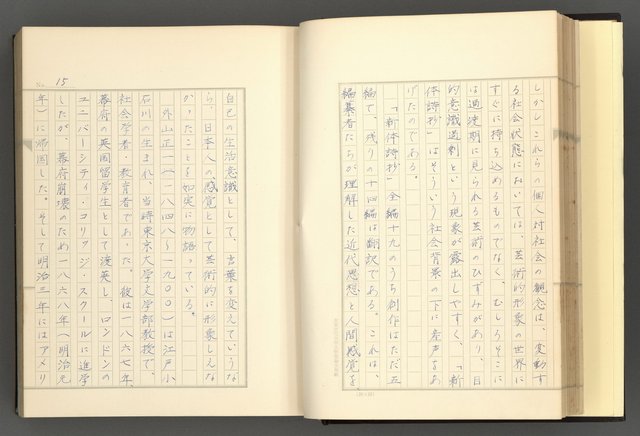 しかしこれらの個人対社会の観念は、変動す
る社会状態においては、芸術的形象の世界に
すぐに持ち込めるものでなく、むしろそこに
は過渡期に見られる芸術のひずみがあり、目
的意識過剰という現象が露出しやすく、「新
体詩抄」はそういう社会背景の下に産声をあ
げたのである。
「新体詩抄」全編十九のうち創作はただ五
編で、残りの十四編は翻訳である。これは、
編纂者たちが理解した近代思想と人間感覚を、
No. 15
自己の生活意識として、言葉を変えていうな
ら、日本人の感覚として芸術的に形象しえな
かったことを如実に物語っている。
外山正一(一八四八~一九〇〇)は江戸小
石川の生まれ、当時東京大学文学部教授で、
社会学者・教育者であった。彼は一八六七年、
幕府の英国留学生として渡英し、ロンドンの
ユニバーシティ・コリッジ・スクールに進学
したが、幕府崩壊のため一八六八年(明治元
年)に帰国した。そして明治三年にはアメリ